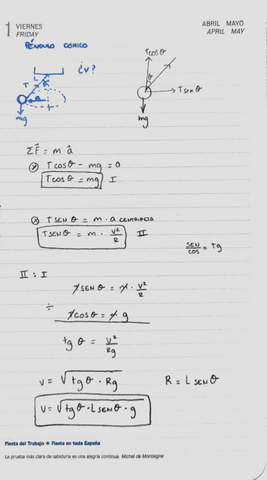 1 VIERNES
FRIDAY
ABRIL MAYO
APRIL MAY
PÉNDULO CÓNICO
¿v?
L
θ
T
R
mg
Tcosθ
θ
Tsenθ
mg
ΣF⃗ = m a⃗
Tcosθ - mg = 0
Tcosθ = mg I
Tsenθ = m · a CENTRIPETA
Tsenθ = m · v²/R II
sen/cos = tg
II : I
Tsenθ = m · v²/R
÷
Tcosθ = m g
tgθ = v²/Rg
v = √tgθ · Rg
R = L senθ
v = √tgθ · L senθ · g
Fiesta del Trabajo ❖ Fiesta en toda España
La prueba más clara de sabiduría es una alegría continua. Michel de Montaigne